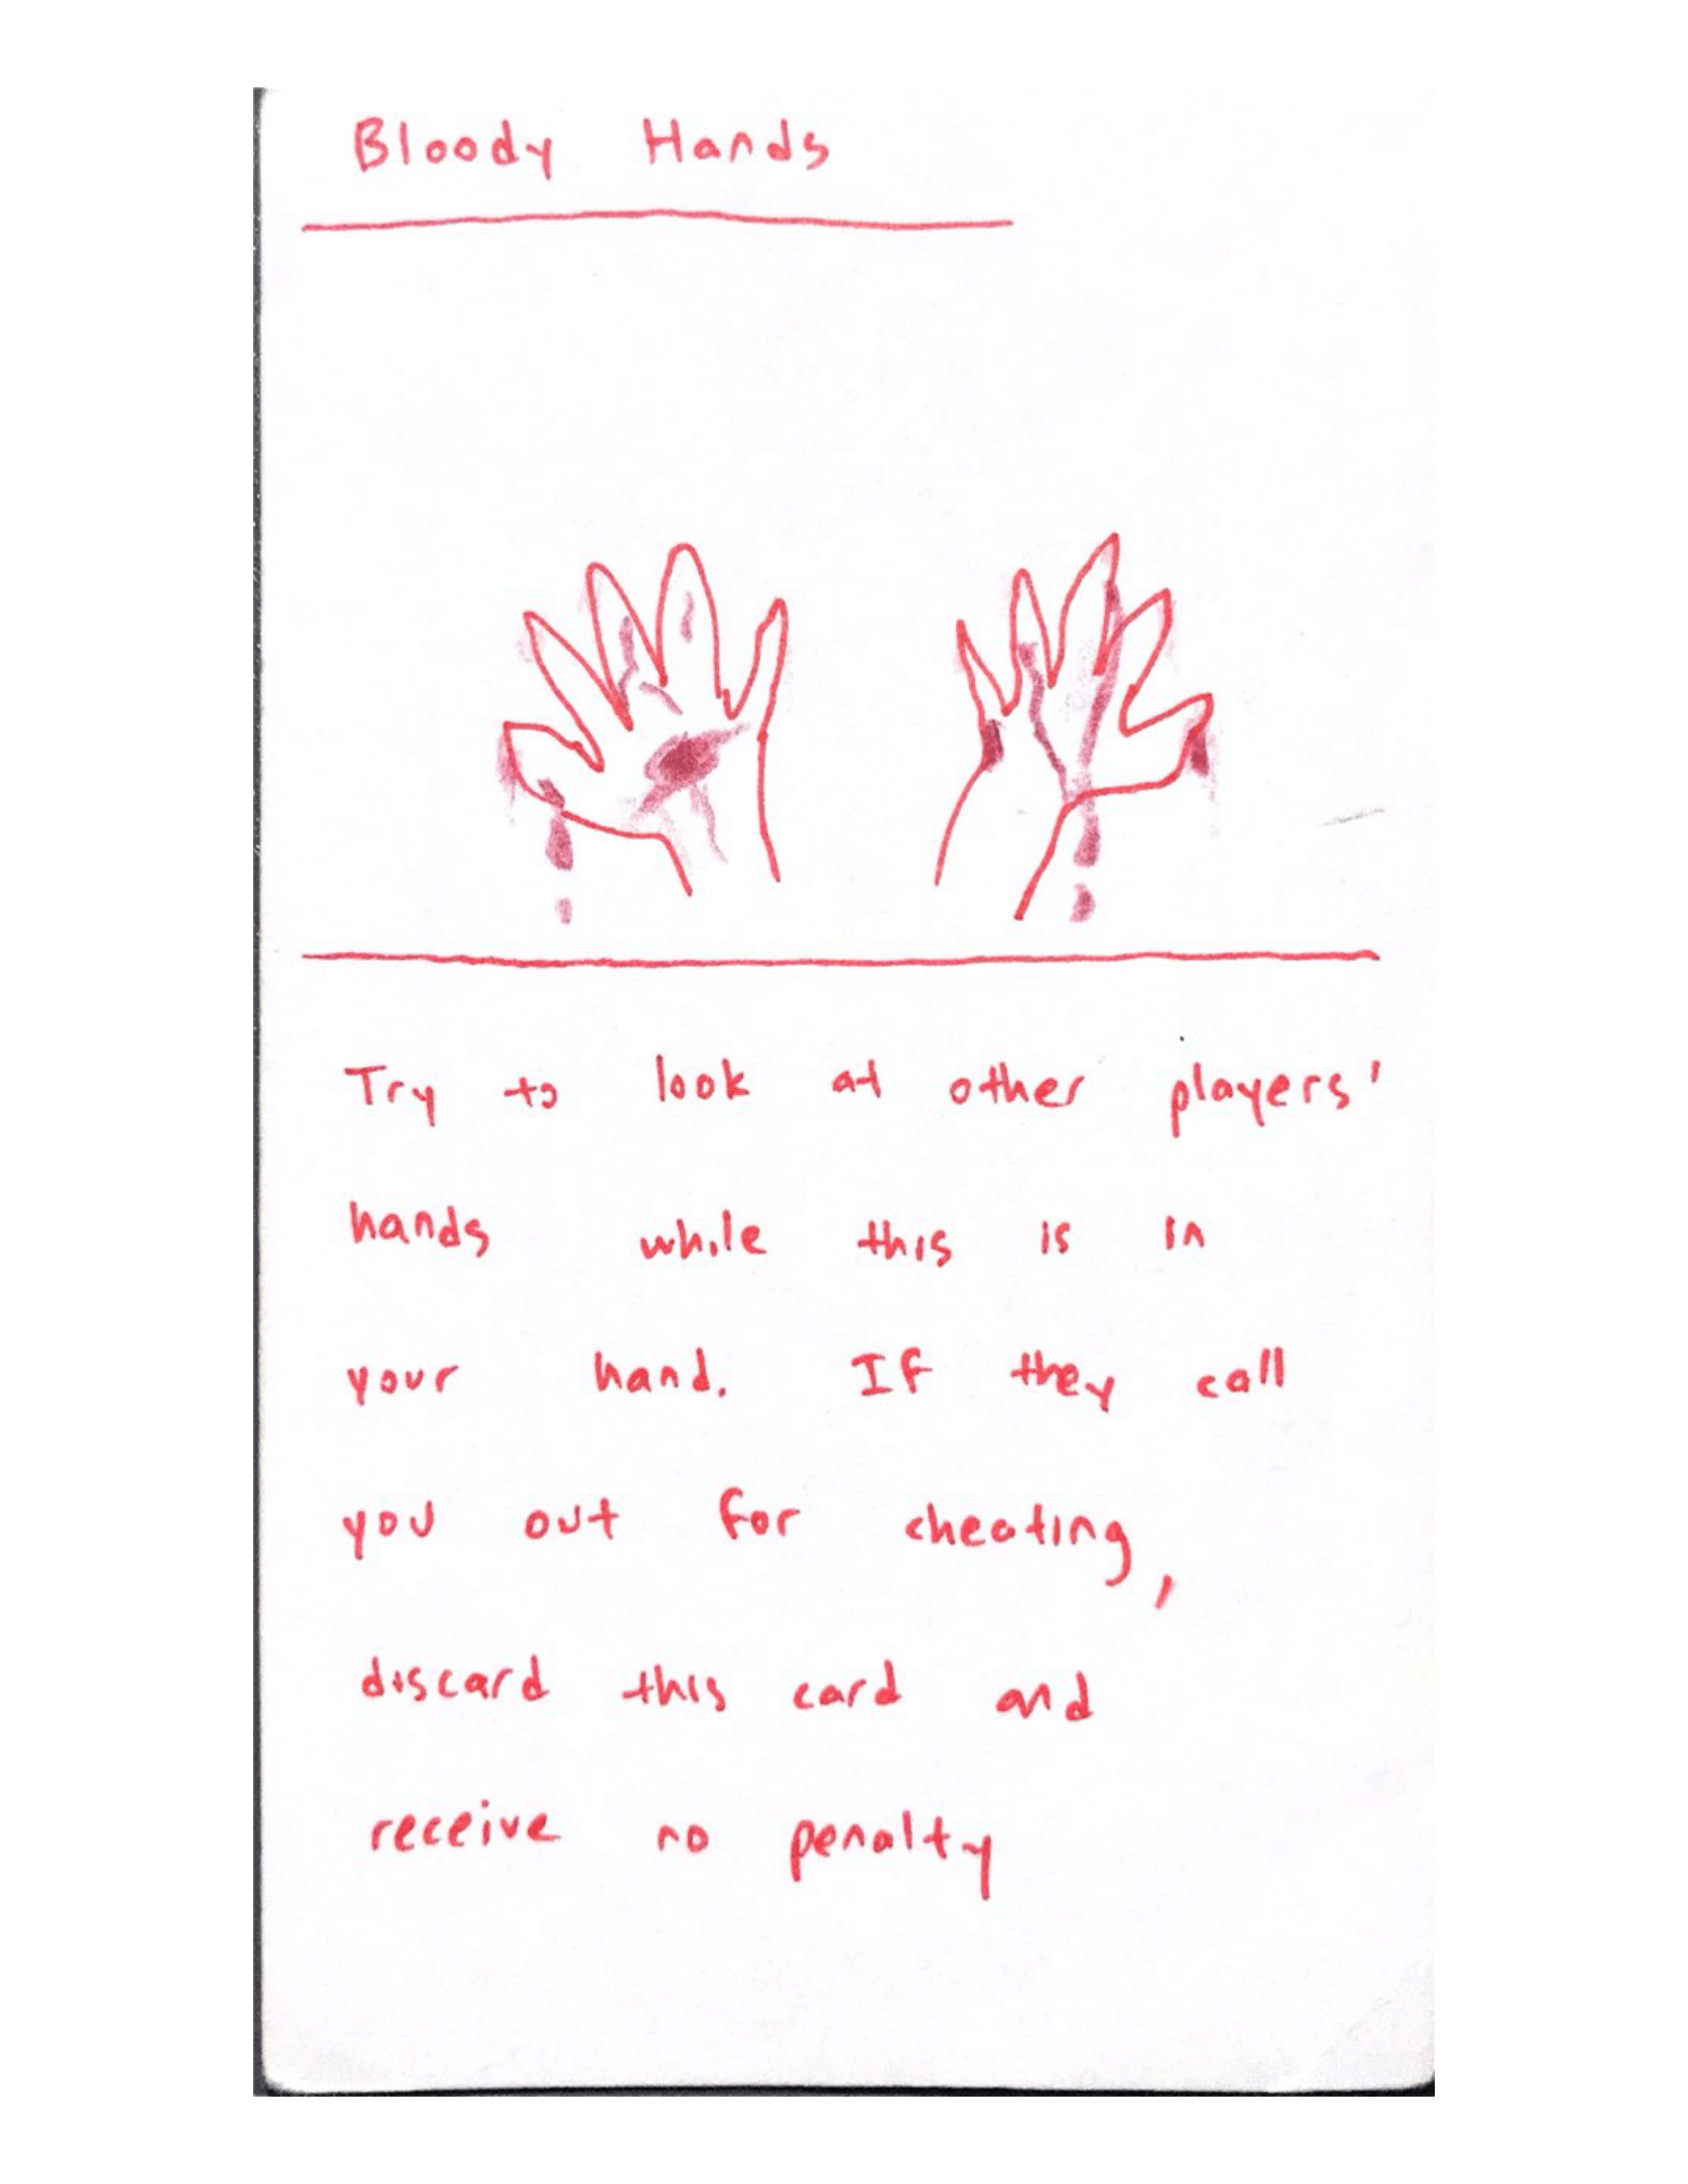 Bloody Hands
Try to look at other players'
hands while this is in
your hand. If they call
you out for cheating,
discard this card and
receive no penalty